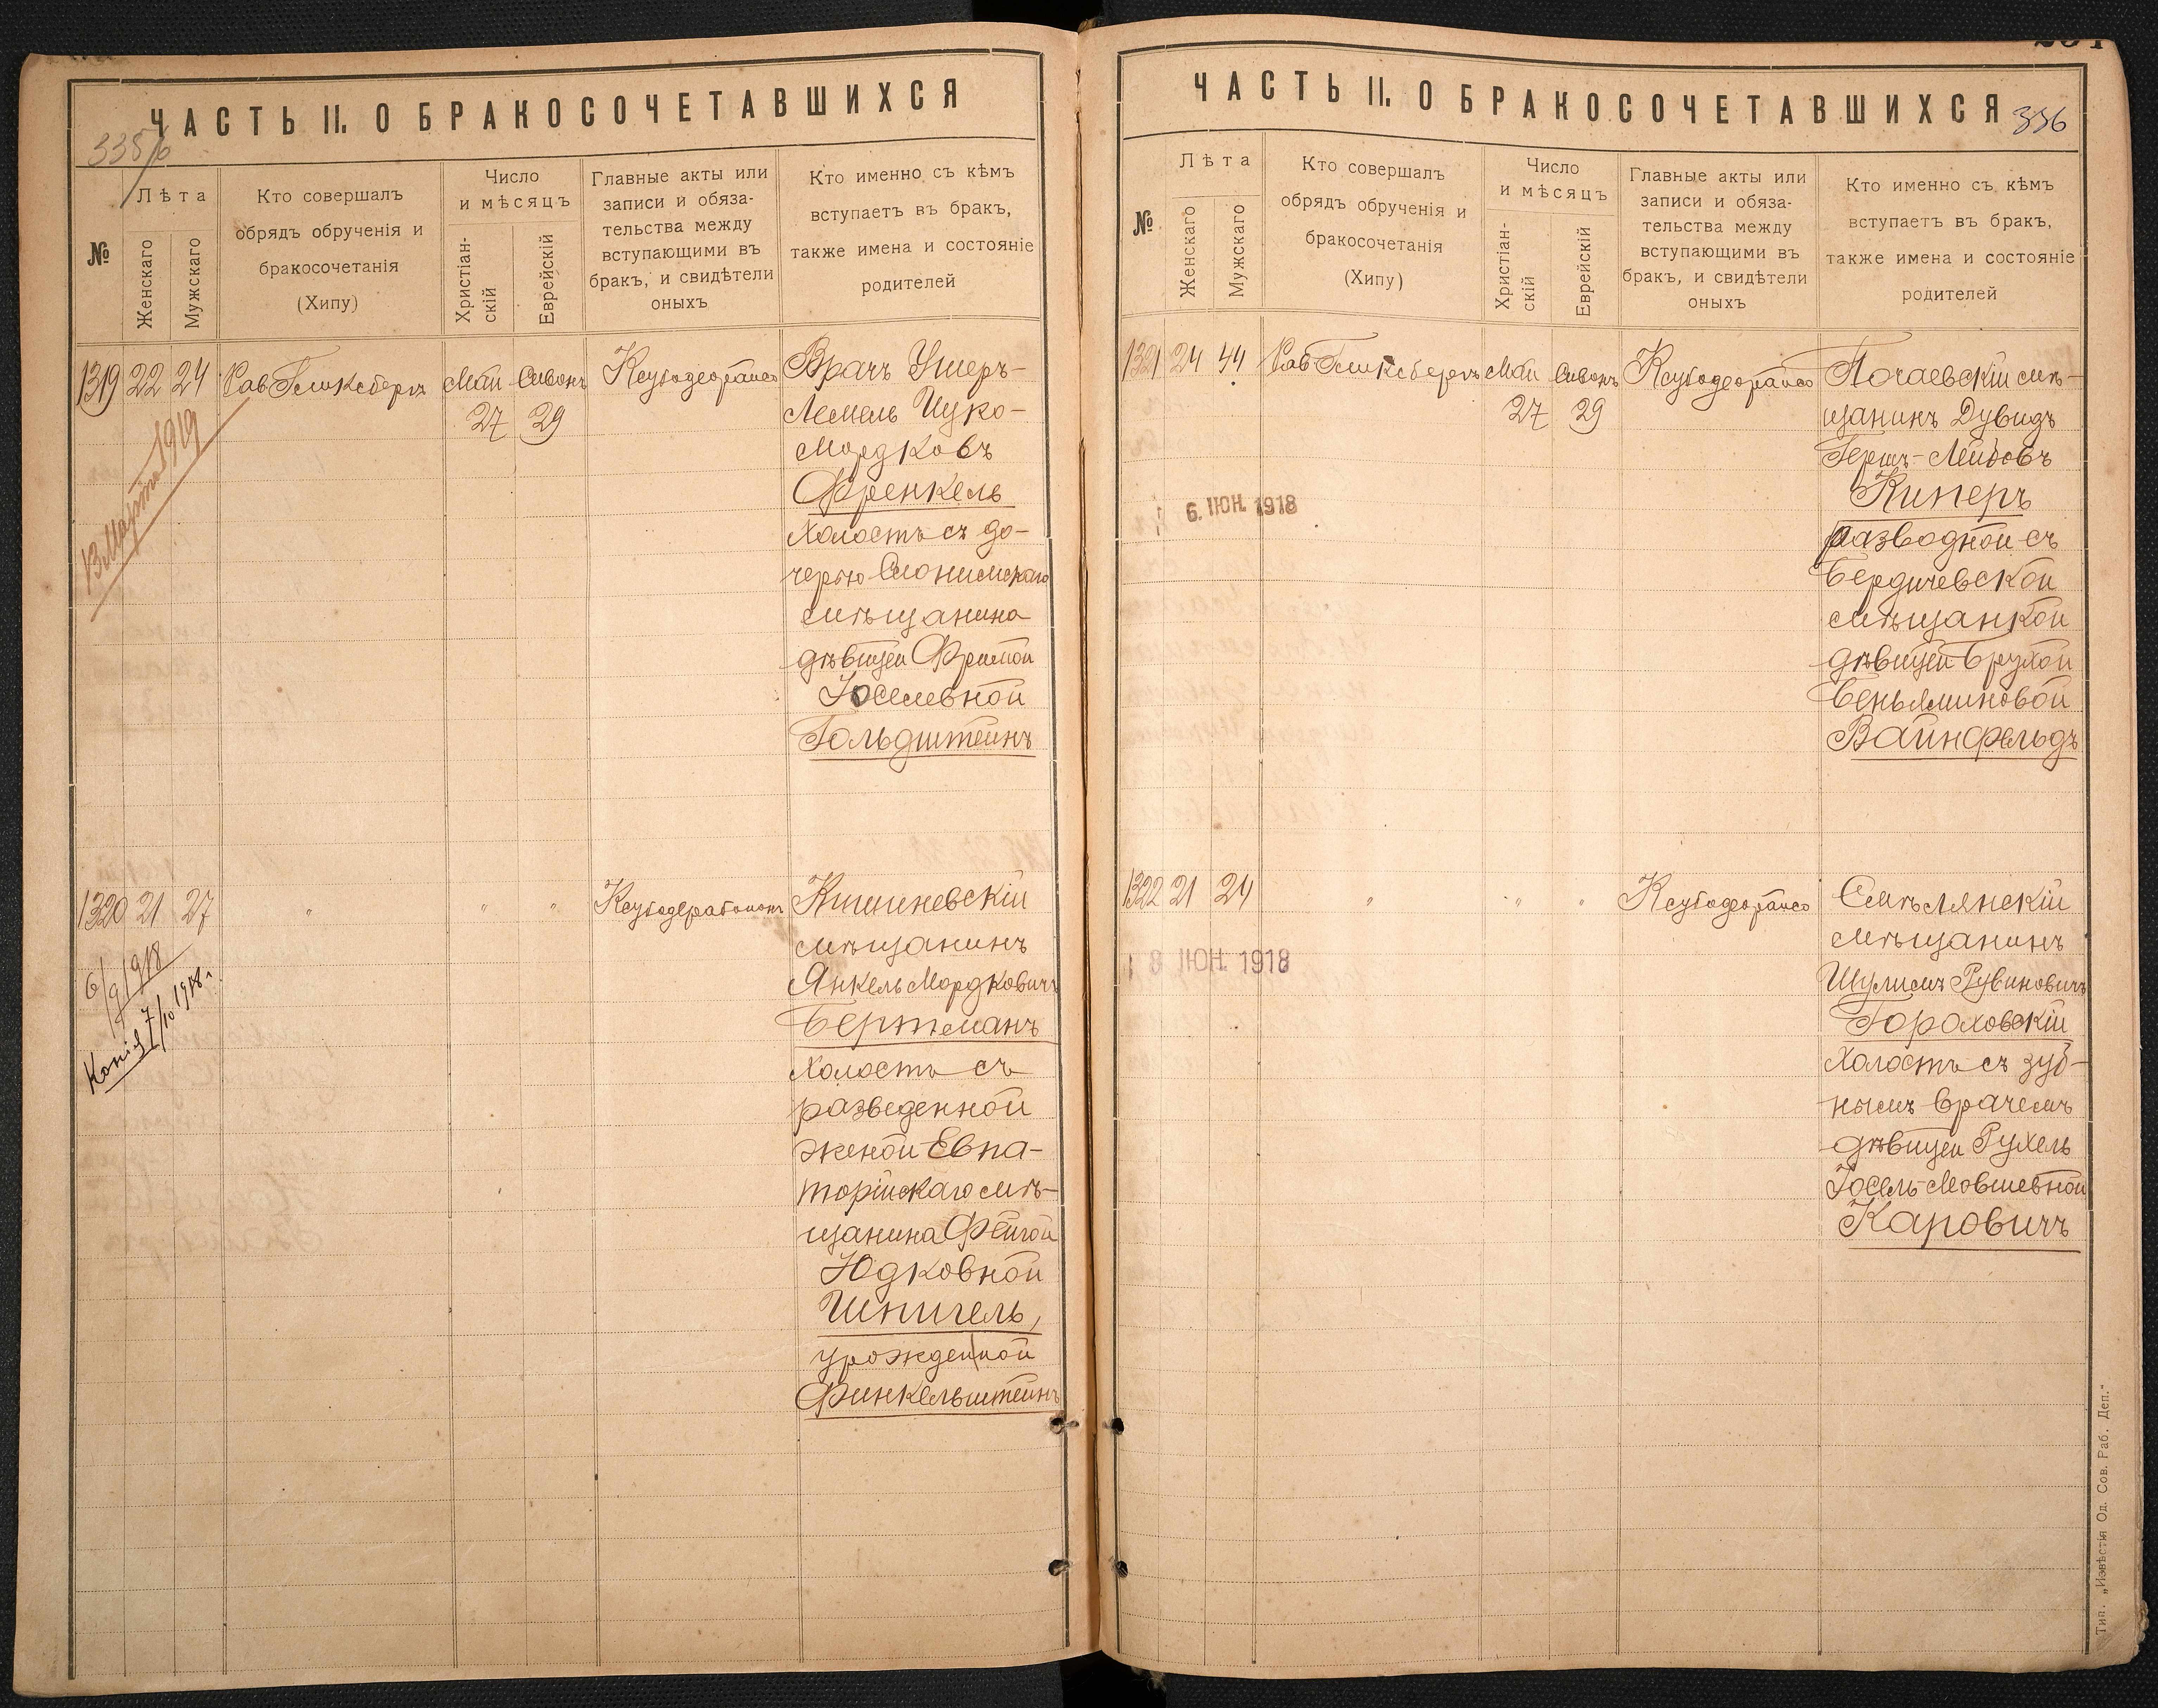 ЧАСТЬ II. О БРАКОСОЧЕТАВШИХСЯ
№
Лѣта
Женскаго
Мужскаго
Кто совершалъ
обрядъ обрученія и
бракосочетанія
(Хипу)
Число
и мѣсяцъ
Христіан-
скій
Еврейскій
Главные акты или
записи и обяза-
тельства между
вступающими въ
бракъ, и свидѣтели
оныхъ
Кто именно съ кѣмъ
вступаетъ въ бракъ,
также имена и состояніе
родителей
1319 22 24 Рав Гликсбергъ Май Сивонъ
27 29
13 Марта 1919
Врачъ Ушеръ-
Лемель Ицко-
Мордковъ
Френкель
холостъ съ до-
черью Слонимскаго
мѣщанина
дѣвицей Фримой
Іоселевной
Гольдштейнъ
1320 21 27 " " "
6/9 1918
Копія 7/10 1918 г.
Кишиневскій
мѣщанинъ
Янкель Мордковичъ
Бертманъ
холостъ съ
разведенной
женой Евпа-
торійскаго мѣ-
щанина Фейгой
Юдковной
Шпигель,
урожденной
Финкельштейнъ
ЧАСТЬ II. О БРАКОСОЧЕТАВШИХСЯ
336
№
Лѣта
Женскаго
Мужскаго
Кто совершалъ
обрядъ обрученія и
бракосочетанія
(Хипу)
Число
и мѣсяцъ
Христіан-
скій
Еврейскій
Главные акты или
записи и обяза-
тельства между
вступающими въ
бракъ, и свидѣтели
оныхъ
Кто именно съ кѣмъ
вступаетъ въ бракъ,
также имена и состояніе
родителей
1321 24 44 Рав Гликсбергъ Май Сивонъ
27 29
6. ІЮН. 1918
Почаевскій мѣ-
щанинъ Дувидъ
Гершъ-Лейбовъ
Киперъ
разводной съ
Бердичевской
мѣщанкой
дѣвицей Брухой
Беньяминовой
Вайнфельдъ
1322 21 24 " " "
8 ІЮН. 1918
Смѣлянскій
мѣщанинъ
Шулимъ Рувиновичъ
Гороховскій
холостъ съ зуб-
нымъ врачемъ
дѣвицей Рухель
Іосель-Мовшевной
Каровичъ
Тип. „Извѣстія Од. Сов. Раб. Деп."